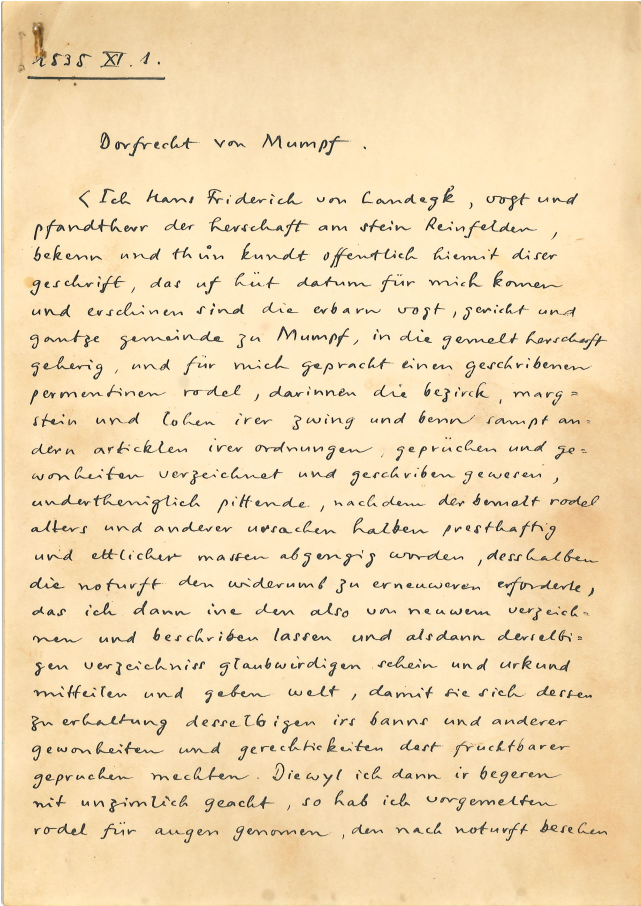 1535 XI. 1.
Dorfrecht von Mumpf.
< Ich Hans Friderich von Landegk, vogt und
pfandtherr der herschaft am stein Reinfelden,
bekenn und thůn kundt offentlich hiemit diser
geschrift, das uf hüt datum für mich komen
und erschinen sind die erbarn vogt, gericht und
gantze gemeinde zu Mumpf, in die gemelt herschaft
geherig, und für mich gepracht einen geschribenen
permentinen rodel, darinnen die bezirck, marg=
stein und lohen irer zwing und benn sampt an=
dern articklen irer ordnungen, geprüchen und ge=
wonheiten verzeichnet und geschriben gewesen,
undertheniglich pittende, nachdem der bemelt rodel
alters und anderer ursachen halben presthaftig
und ettlicher massen abgengig worden, desshalben
die noturft den widerumb zu erneuweren erforderte,
das ich dann ine den also von neuwem verzeich=
nen und beschriben lassen und alsdann derselbi=
gen verzeichniss glaubwirdigen schein und urkund
mitteilen und geben welt, damit sie sich dessen
zu erhaltung desselbigen irs banns und anderer
gewonheiten und gerechtickeiten dest fruchtbarer
gepruchen mechten. Diewyl ich dann ir begeren
nit unzimlich geacht, so hab ich vorgemelten
rodel für augen genomen, den nach noturft besehen